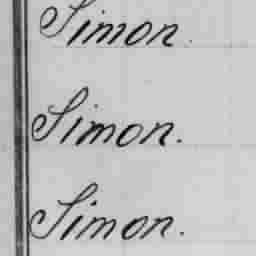 Simon.
Simon.
Simon.